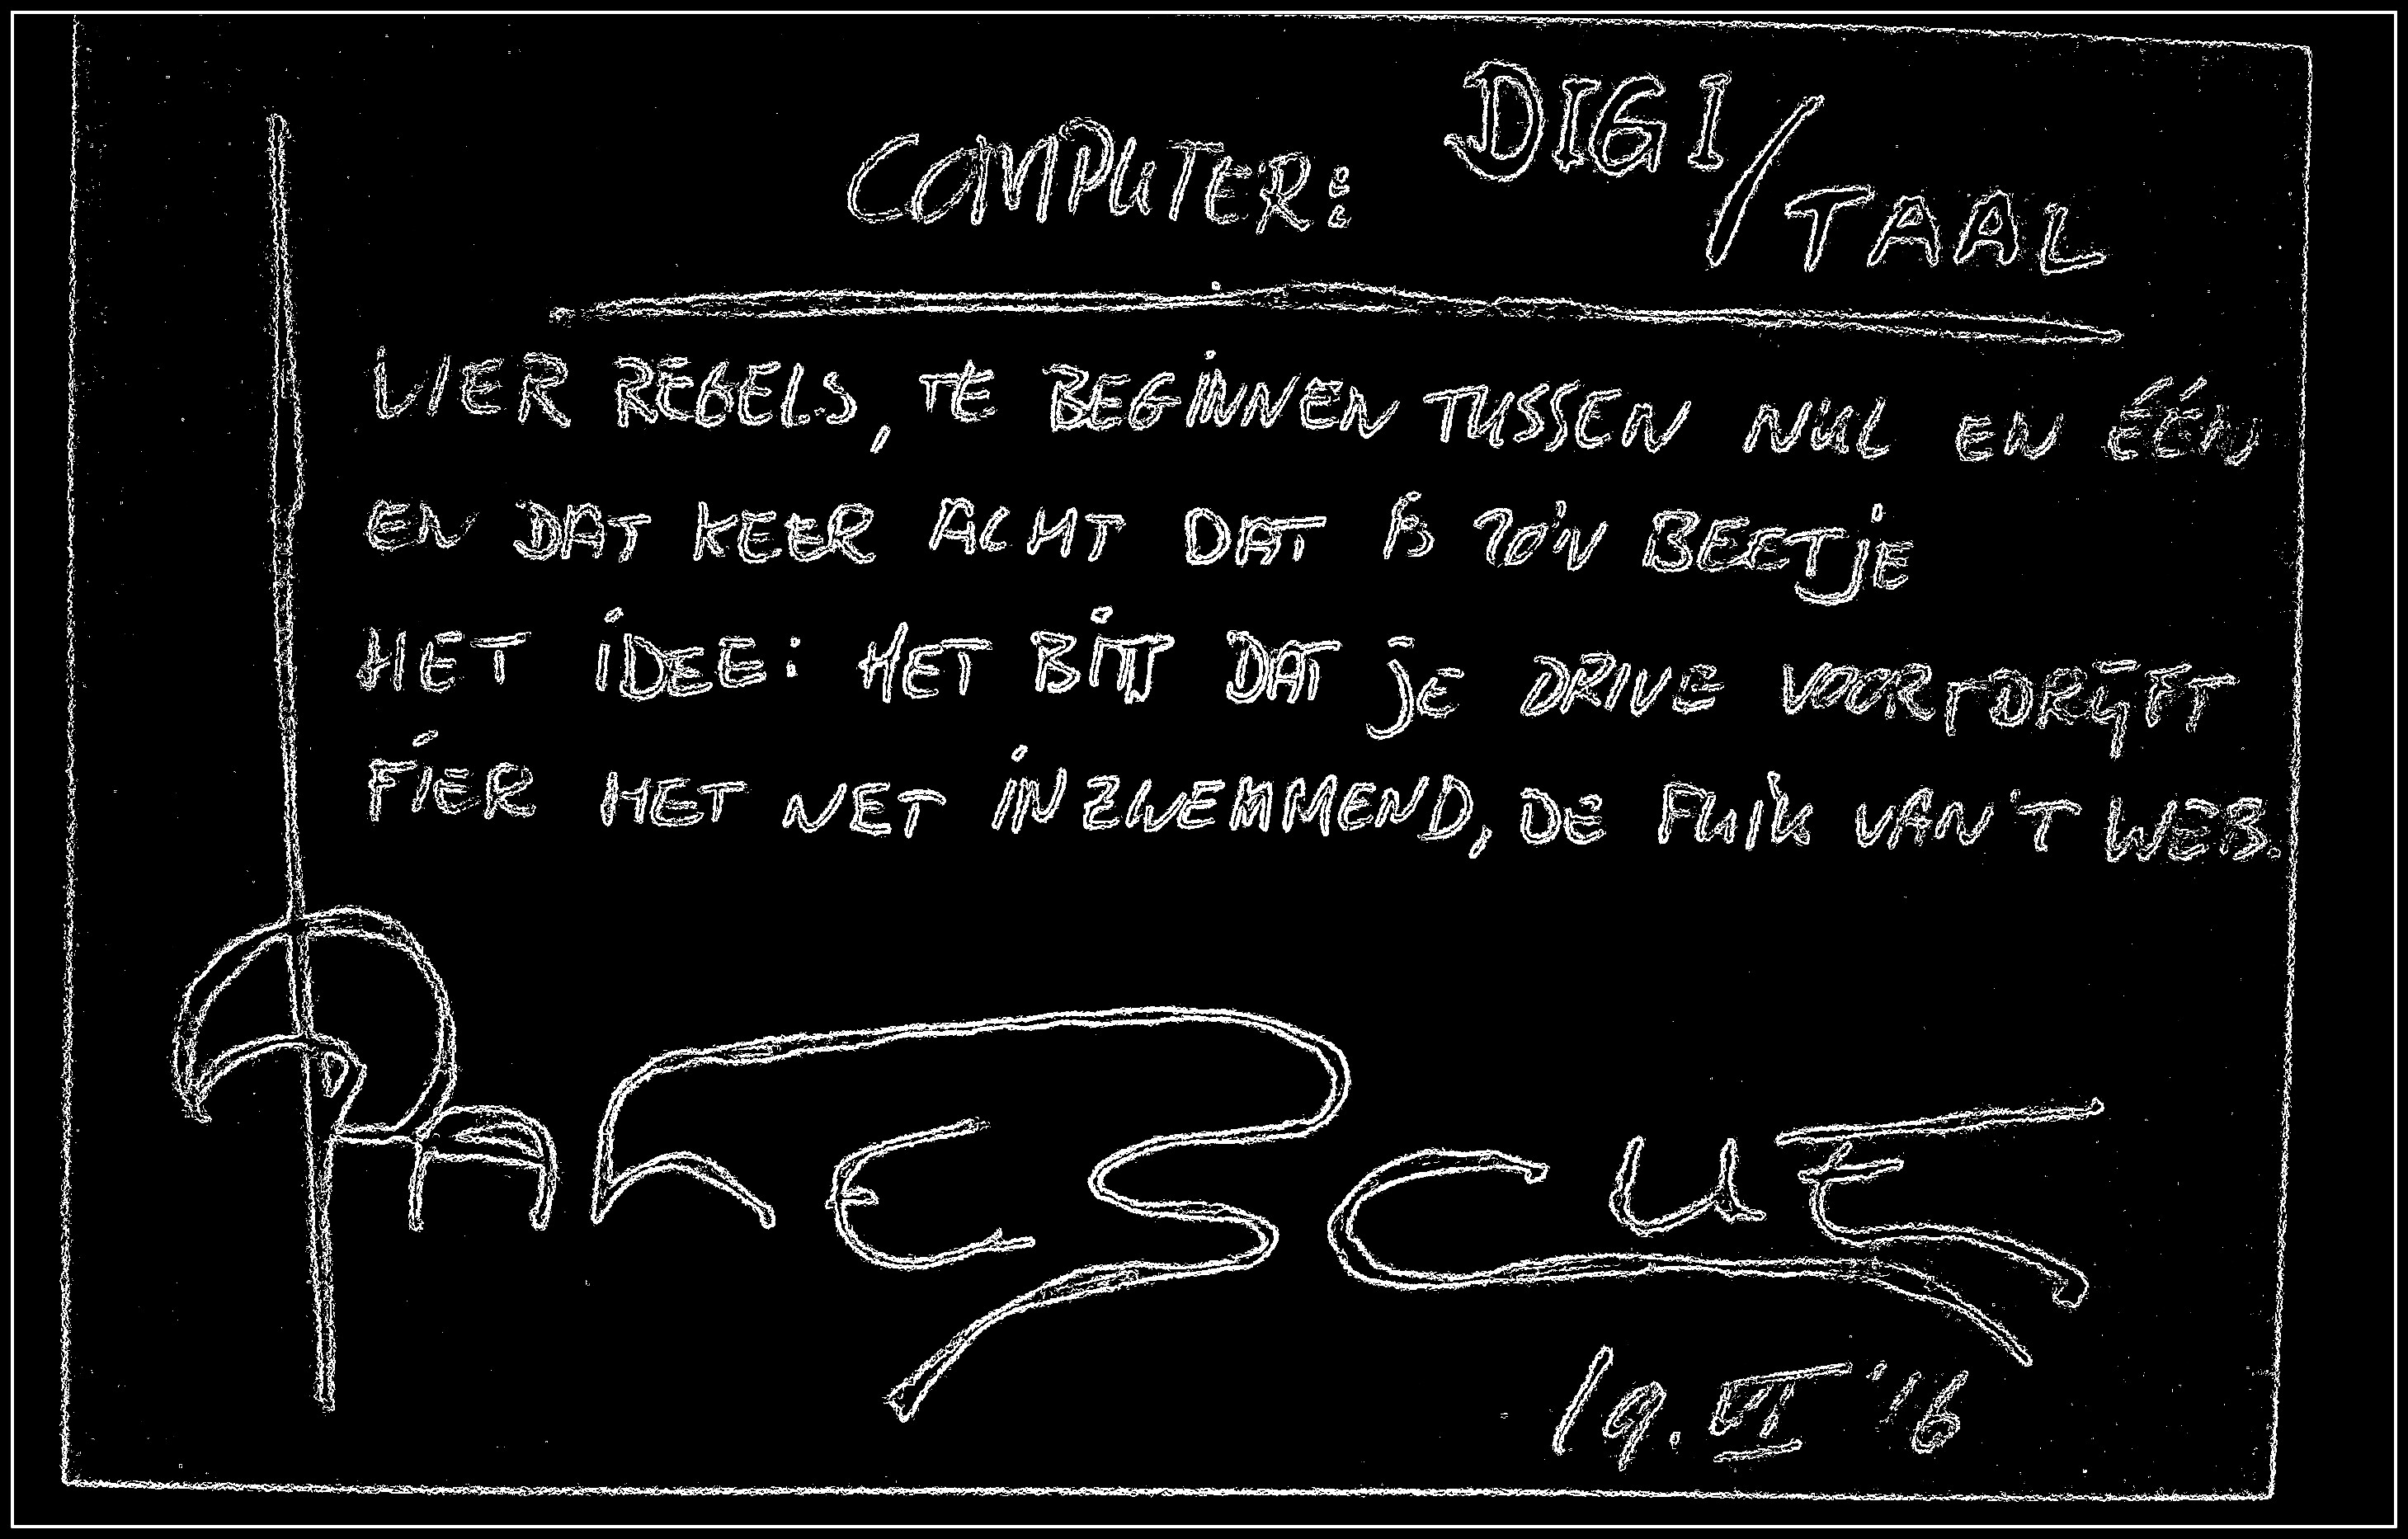 COMPUTER: DIGI/TAAL
VIER REGELS, TE BEGINNEN TUSSEN NUL EN ÉÉN
EN DAT KEER ACHT DAT IS ZO'N BEETJE
HET IDEE: HET BITJ DAT JE DRIVE VOORTDRIJFT
FIER HET NET INZWEMMEND, DE FUIK VAN'T WEB.
19.VI '16